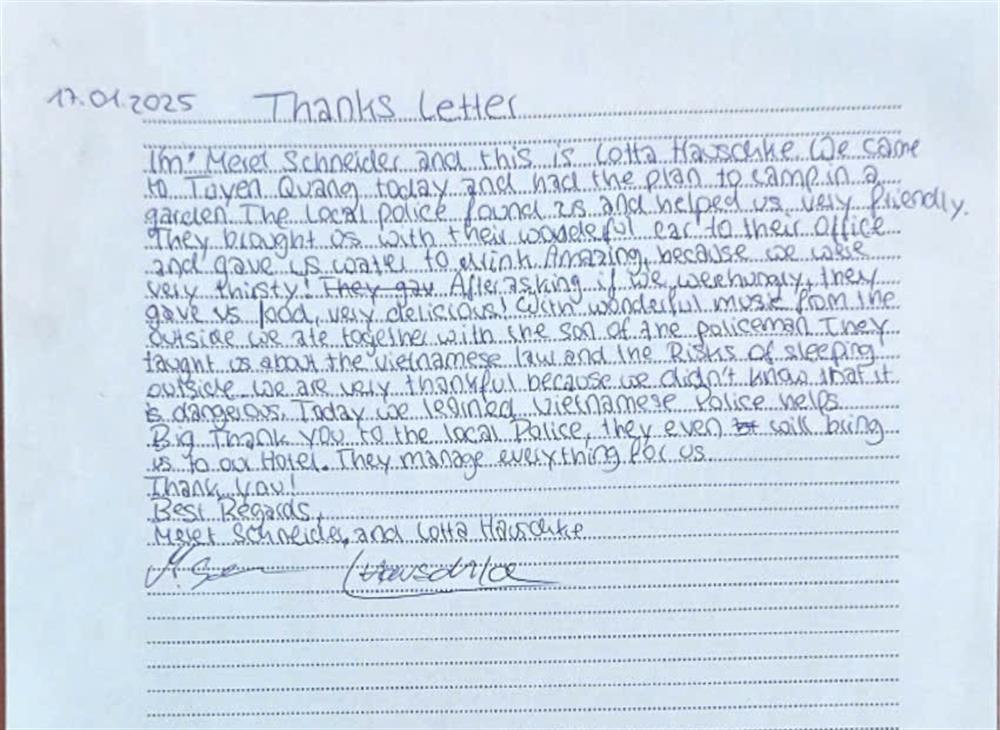 17.01.2025 Thanks Letter
I'm' Meret Schneider and this is Lotta Hauschke. We came
to Tuyen Quang today and had the plan to camp in a
garden. The local police found us and helped us very friendly.
They brought us with their wonderful car to their office
and gave us water to drink. Amazing, because we were
very thirsty! They gav After asking if we were hungry, they
gave us food, very delicious! With wonderful music from the
outside we ate together with the son of the policeman. They
taught us about the vietnamese law and the Risks of sleeping
outside. We are very thankful because we didn't know that it
is dangerous. Today we learned Vietnamese Police helps.
Big Thank you to the local Police, they even will bring
us to our Hotel. They manage everything for us.
Thank you!
Best Regards,
Meret Schneider and Lotta Hauschke
Hauschke